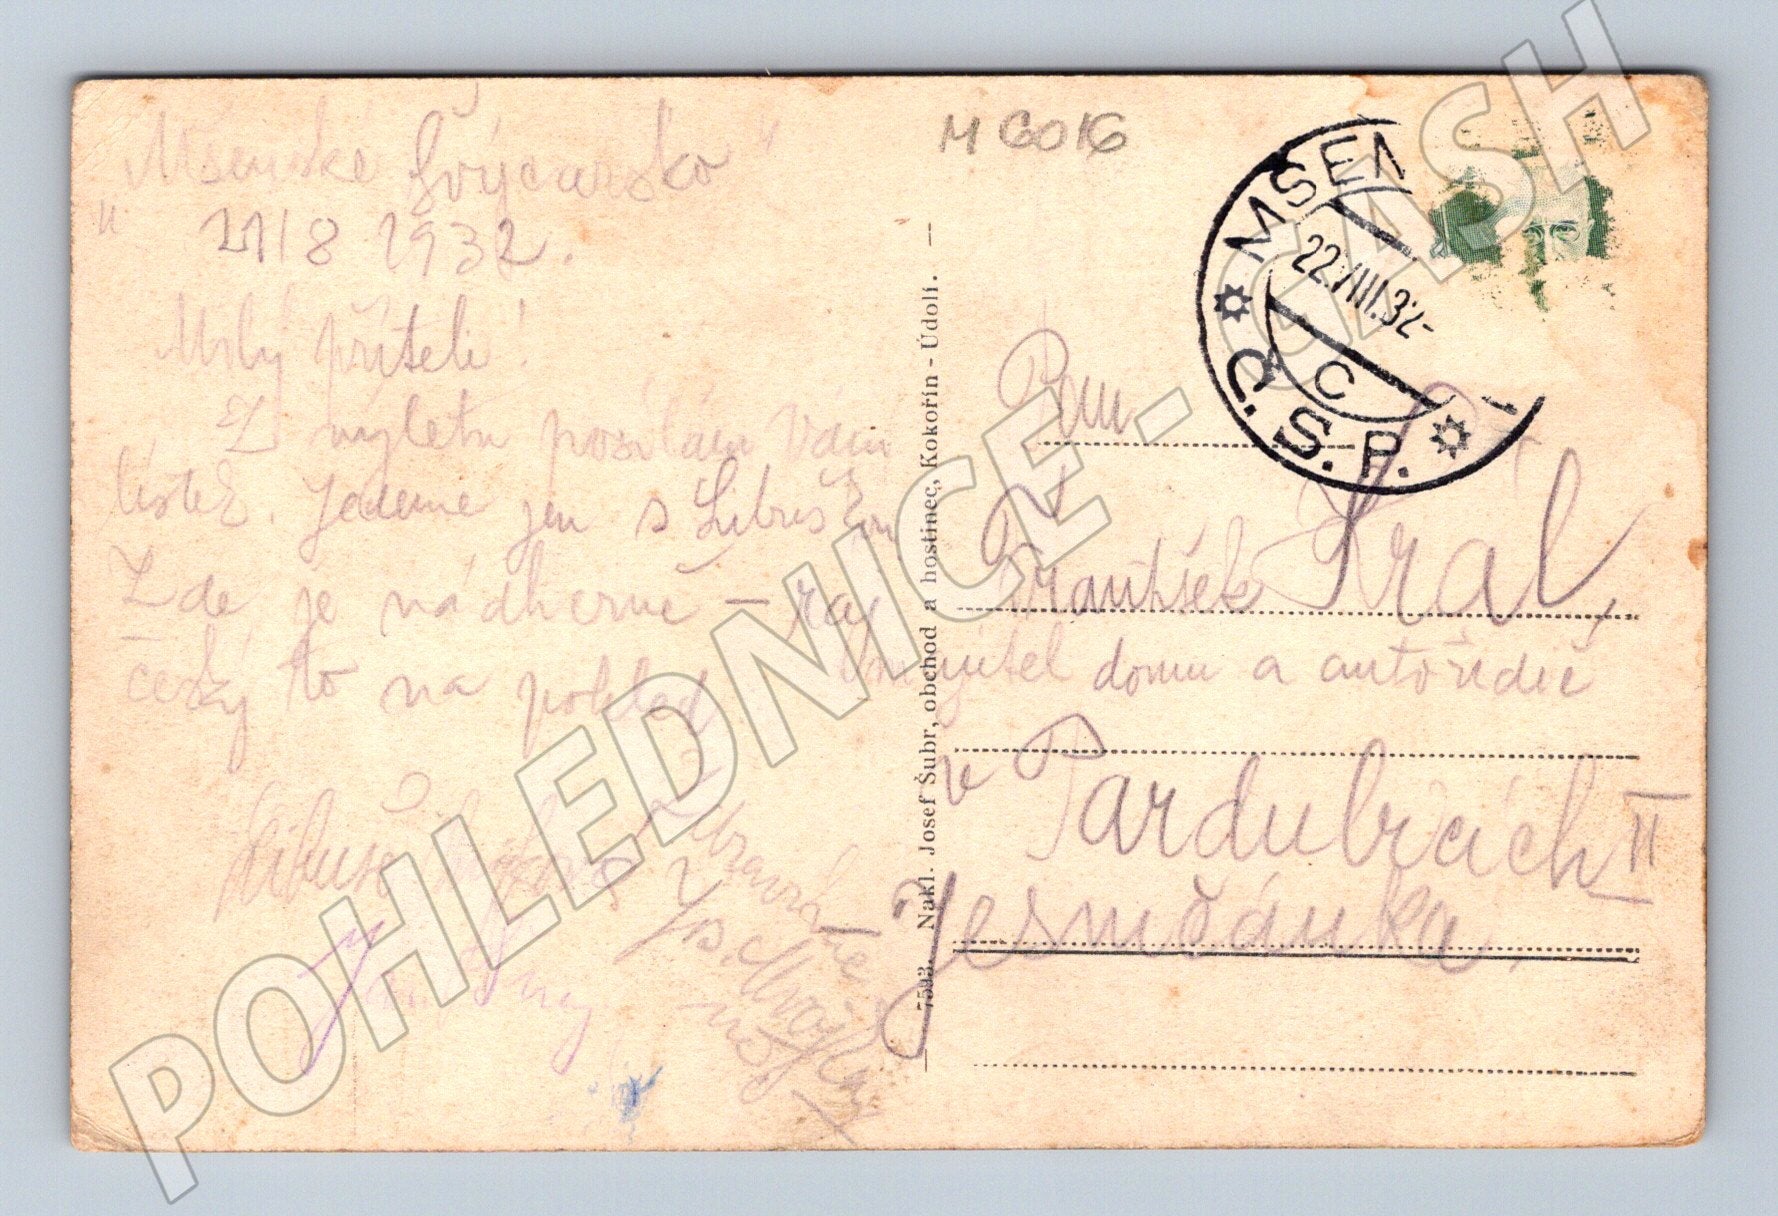 "Mšenské Švýcarsko"
21/8 1932.
Milý příteli!
Z výletu posílám Vám
lístek. Jedeme jen s Libuškou
Zde je nádherně – ráj
český to na pohled
Libuše
M 6016
MŠENO
22.VIII.32-
C
Č.S.P.
Pan
František Král,
domu a autořidič
v Pardubicích II
Jesničánka.
7593. Nakl. Josef Šubr, obchod a hostinec, Kokořín - Údolí.
POHLEDNICE - CASH